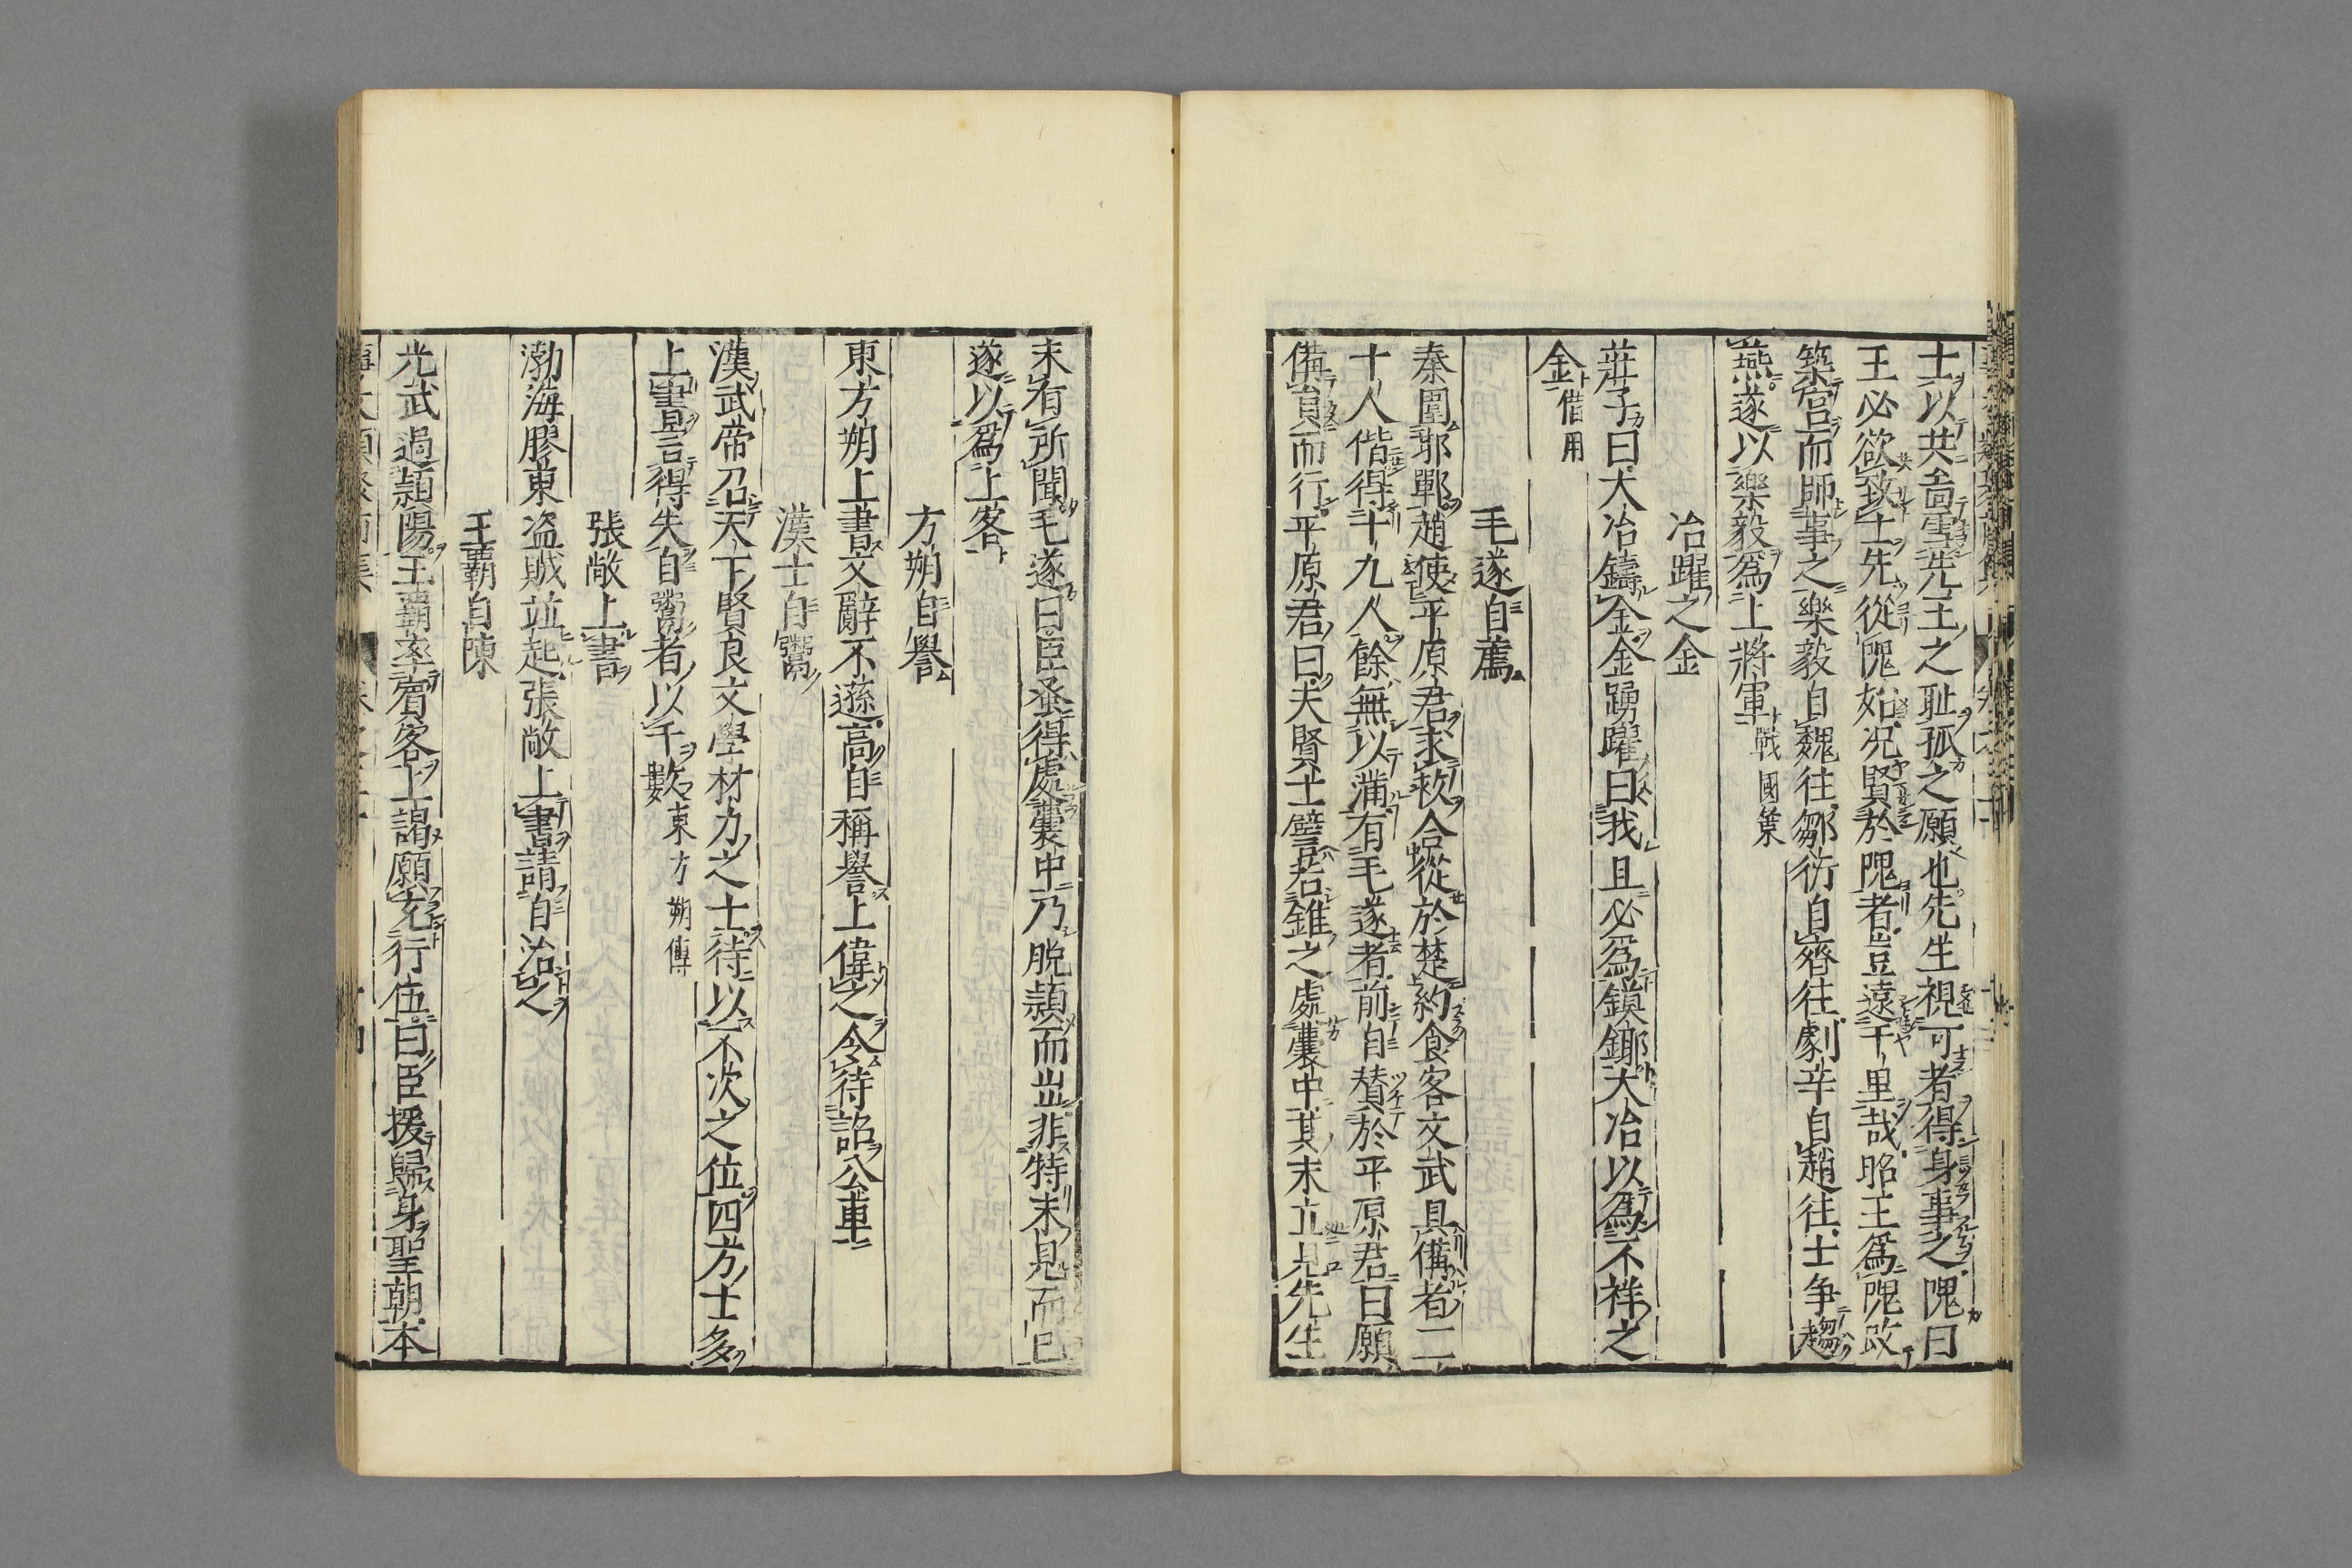 士以共啚雪先王之耻孤之願也先生視可者得身事之隗曰
王必欲致士先從隗始况賢於隗者豈遠千里哉昭王爲隗改
築宫而師事之樂毅自魏往鄒衍自齊往劇辛自趙往士争趨
燕遂以樂毅爲上將軍戰國策
冶躍之金
莊子曰大冶鑄金金踴躍曰我且必爲鏌鎁大冶以爲不祥之
金借用
毛遂自薦
秦圍邯鄲趙使平原君求救合從於楚約食客文武具備者二
十人偕得十九人餘無以滿有毛遂者前自賛於平原君曰願
備員而行平原君曰夫賢士譬若錐之處囊中其末立見先生
未有所聞毛遂曰臣蚤得處囊中乃脱頴而出非特末見而已
遂以爲上客
方朔自譽
東方朔上書文辭不遜高自稱譽上偉之令待詔公車
漢士自鬻
漢武帝召天下賢良文學材力之士待以不次之位四方士多
上書言得失自鬻者以千數東方朔傳
張敞上書
渤海膠東盗賊並起張敞上書請自治之
王覇自陳
光武過頴陽王覇率賔客上謁願充行伍曰臣援歸身聖朝本